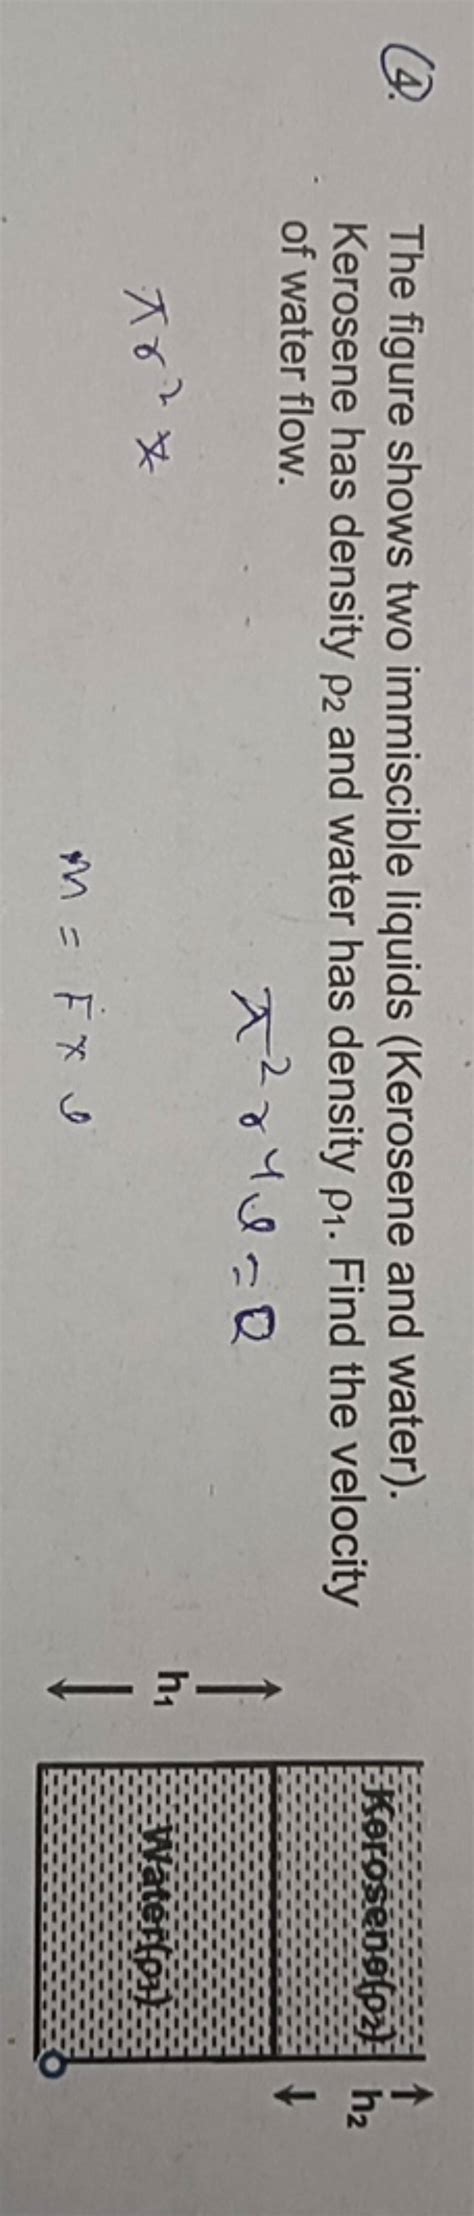 4.
The figure shows two immiscible liquids (Kerosene and water).
Kerosene has density ρ2 and water has density ρ1. Find the velocity
of water flow.
Kerosene(ρ2)
h2
h1
Water(ρ1)
πr²
m = F×